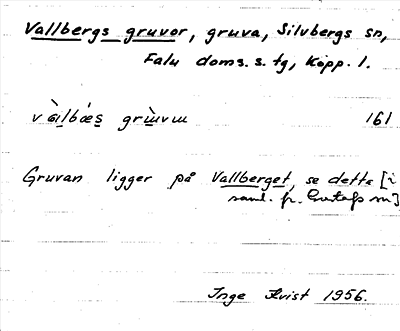 Vallbergs gruvor, gruva, Silvbergs sn,
Falu doms. s. tg, Kopp. l.
161
Gruvan ligger på Vallberget, se detta [i
saml. fr. Gustafs sn]
Inge Kvist 1956.